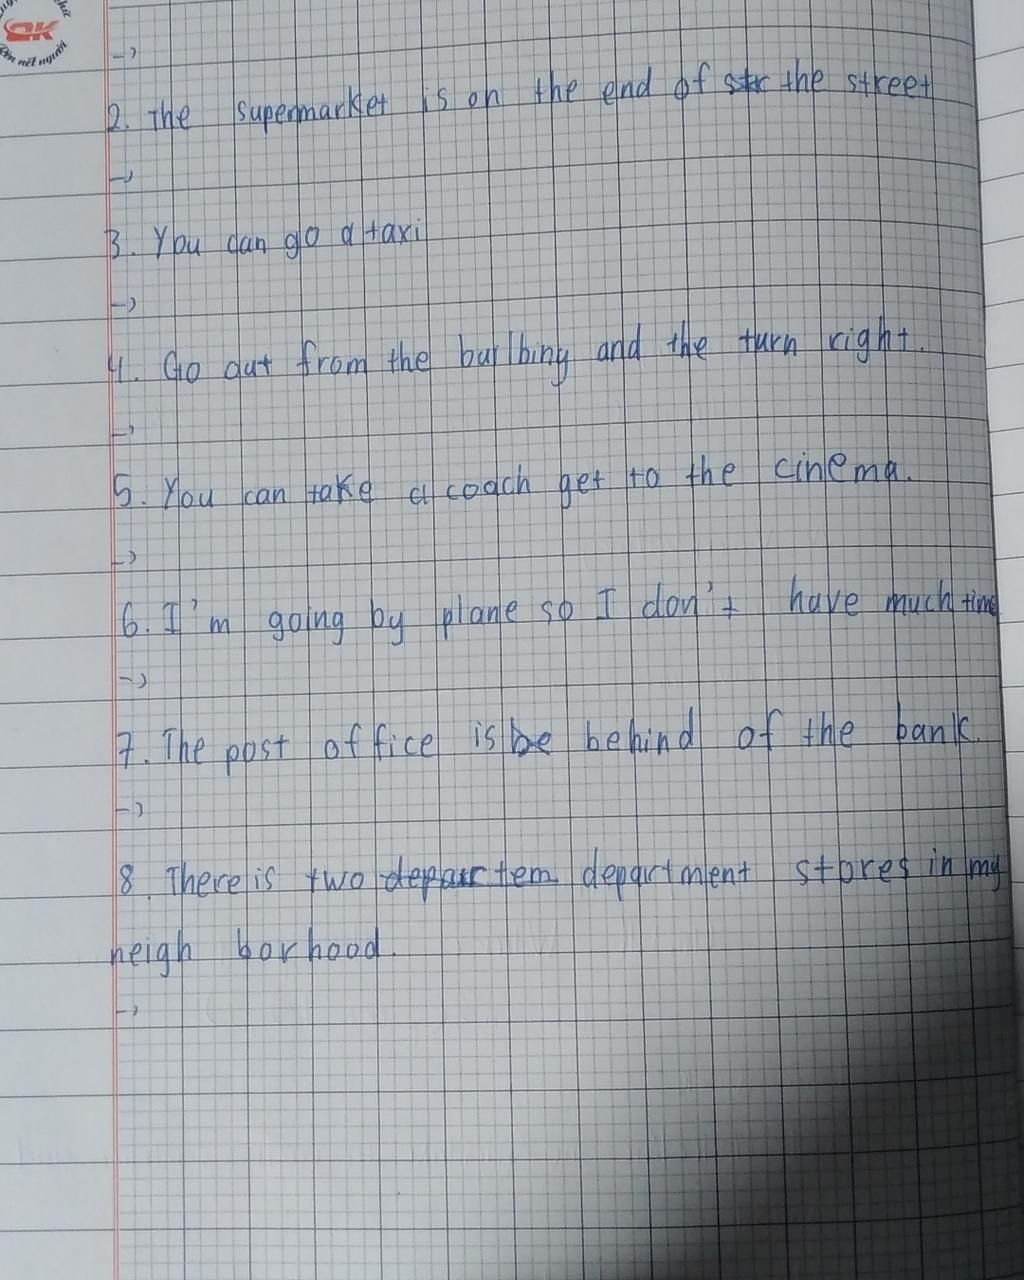 QK
nết người
->
2. The supermarket is on the end of str the street
->
3. You can go a taxi
->
4. Go out from the builbing and the turn right.
->
5. You can take a coach get to the cinema.
->
6. I'm going by plane so I don't have much time
->
7. The post office is be behind of the bank.
->
8. There is two departem department stores in my
neigh borhood.
->